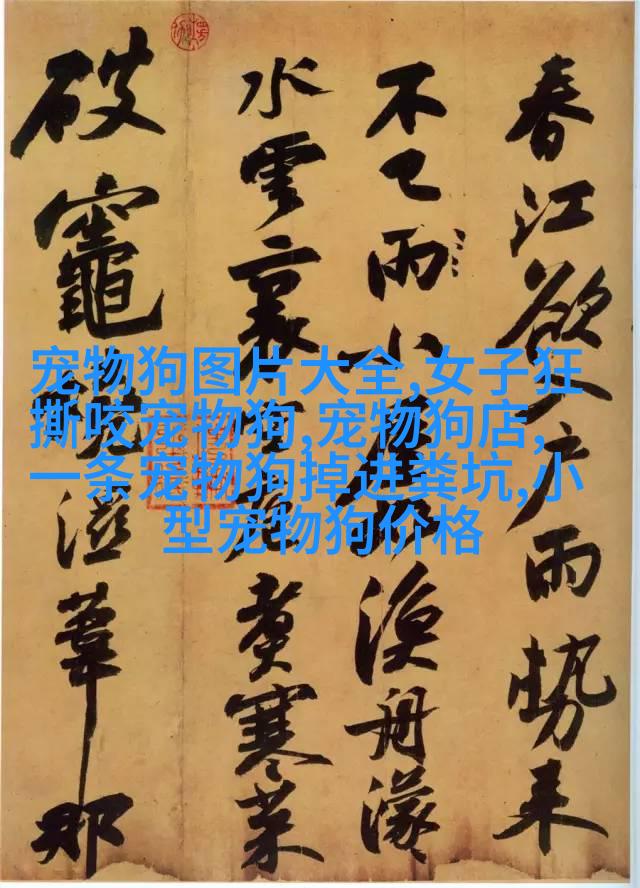 春江欲入户雨勢来
不已雨小屋漁舟濛
水雲裏空庖煮寒菜
破竈燒溼葦那
宠物狗图片大全,女子狂
撕咬宠物狗,宠物狗店,
一条宠物狗掉进粪坑,小
型宠物狗价格